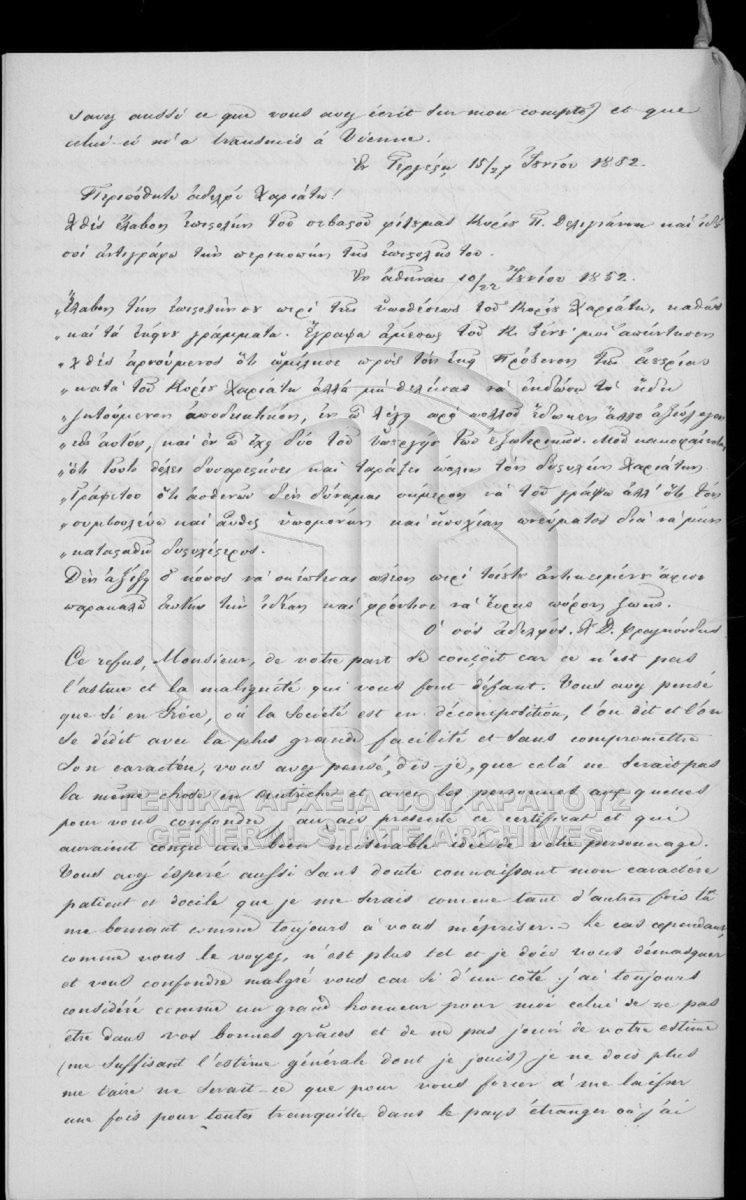 savez aussi ce que vous avez écrit sur mon compte) et que
celui-ci m'a transmis à Vienne.
Ἐν Τεργέστῃ 15/27 Ἰουνίου 1852.
Περιπόθητε ἀδελφὲ Χαριάτη!
Χθὲς ἔλαβον ἐπιστολὴν τοῦ σεβαστοῦ φίλου μας Κυρίου Π. Δεληγιάννη καὶ ἰδοὺ
σοὶ ἀντιγράφω τὴν περικοπὴν τῆς ἐπιστολῆς του.
Ἐν Ἀθήναις 10/22 Ἰουνίου 1852.
„Ἔλαβον τὴν ἐπιστολήν σου περὶ τῆς ὑποθέσεως τοῦ Κυρίου Χαριάτη, καθὼς
„καὶ τὰ γράμματα. Ἔγραψα ἀμέσως τοῦ Κ. μοὶ ἀπήντησεν
„χθὲς ἀρνούμενος ὅτι ὡμίλησε πρὸς τὸν Πρόξενον τῆς
„κατὰ τοῦ Κυρίου Χαριάτη ἀλλὰ μὴ θελήσας νὰ ἐκδώσῃ τὸ ἤδη
„ζητούμενον ἀποδεικτικόν, ἐν ᾧ λέγει πρὸ πολλοῦ ἔδωκεν ἄλλο ἀξιόλογον
„εἰς αὐτόν, καὶ ἐν ᾧ ἔχει δύο τοῦ ὑπουργείου τῶν ἐξωτερικῶν. Μοῦ κακοφαίνεται
„ὅτι τοῦτο θέλει δυσαρεστήσει καὶ ταράξει πάλιν τὸν δυστυχῆ Χαριάτην.
„Γράψε του ὅτι ἀσθενῶν δὲν δύναμαι σήμερον νὰ τοῦ γράψω ἀλλ' ὅτι τὸν
„συμβουλεύω καὶ αὖθις ὑπομονὴν καὶ ἡσυχίαν πνεύματος διὰ νὰ μὴν
„κατασταθῇ δυστυχέστερος.
Δὲν ἀξίζει ὁ κόπος νὰ σκέπτεσαι πλέον περὶ τούτου ἀντικειμένου ἄφισε
παρακαλῶ αὐτὴν τὴν ἰδέαν καὶ φρόντισε νὰ εὕρῃς πόρον ζωῆς.
Ὁ σὸς ἀδελφός. Δ. Φραγκούδης
Ce refus, Monsieur, de votre part se conçoit car ce n'est pas
l'astuce et la malignité qui vous font défaut. Vous avez pensé
que si en Grèce, où la société est en décomposition, l'on dit et l'on
se dédit avec la plus grande facilité et sans compromettre
son caractère, vous avez pensé, dis-je, que celà ne serait pas
la même chose en Autriche et avec les personnes aux quelles
pour vous confondre j'aurais présenté ce certificat et qui
auraient conçu une bien misérable idée de votre personnage.
Vous avez espéré aussi sans doute connaissant mon caractère
patient et docile que je me serais comme tant d'autres fois tû
me bornant comme toujours à vous mépriser. – Le cas cependant,
comme vous le voyez, n'est plus tel et je dois vous démasquer
et vous confondre malgré vous car si d'un côté j'ai toujours
considéré comme un grand honneur pour moi celui de ne pas
être dans vos bonnes grâces et de ne pas jouir de votre estime
(me suffisant l'estime générale dont je jouis) je ne dois plus
me taire ne serait-ce que pour vous forcer à me laisser
une fois pour toutes tranquille dans le pays étranger où j'ai
ΓΕΝΙΚΑ ΑΡΧΕΙΑ ΤΟΥ ΚΡΑΤΟΥΣ
GENERAL STATE ARCHIVES